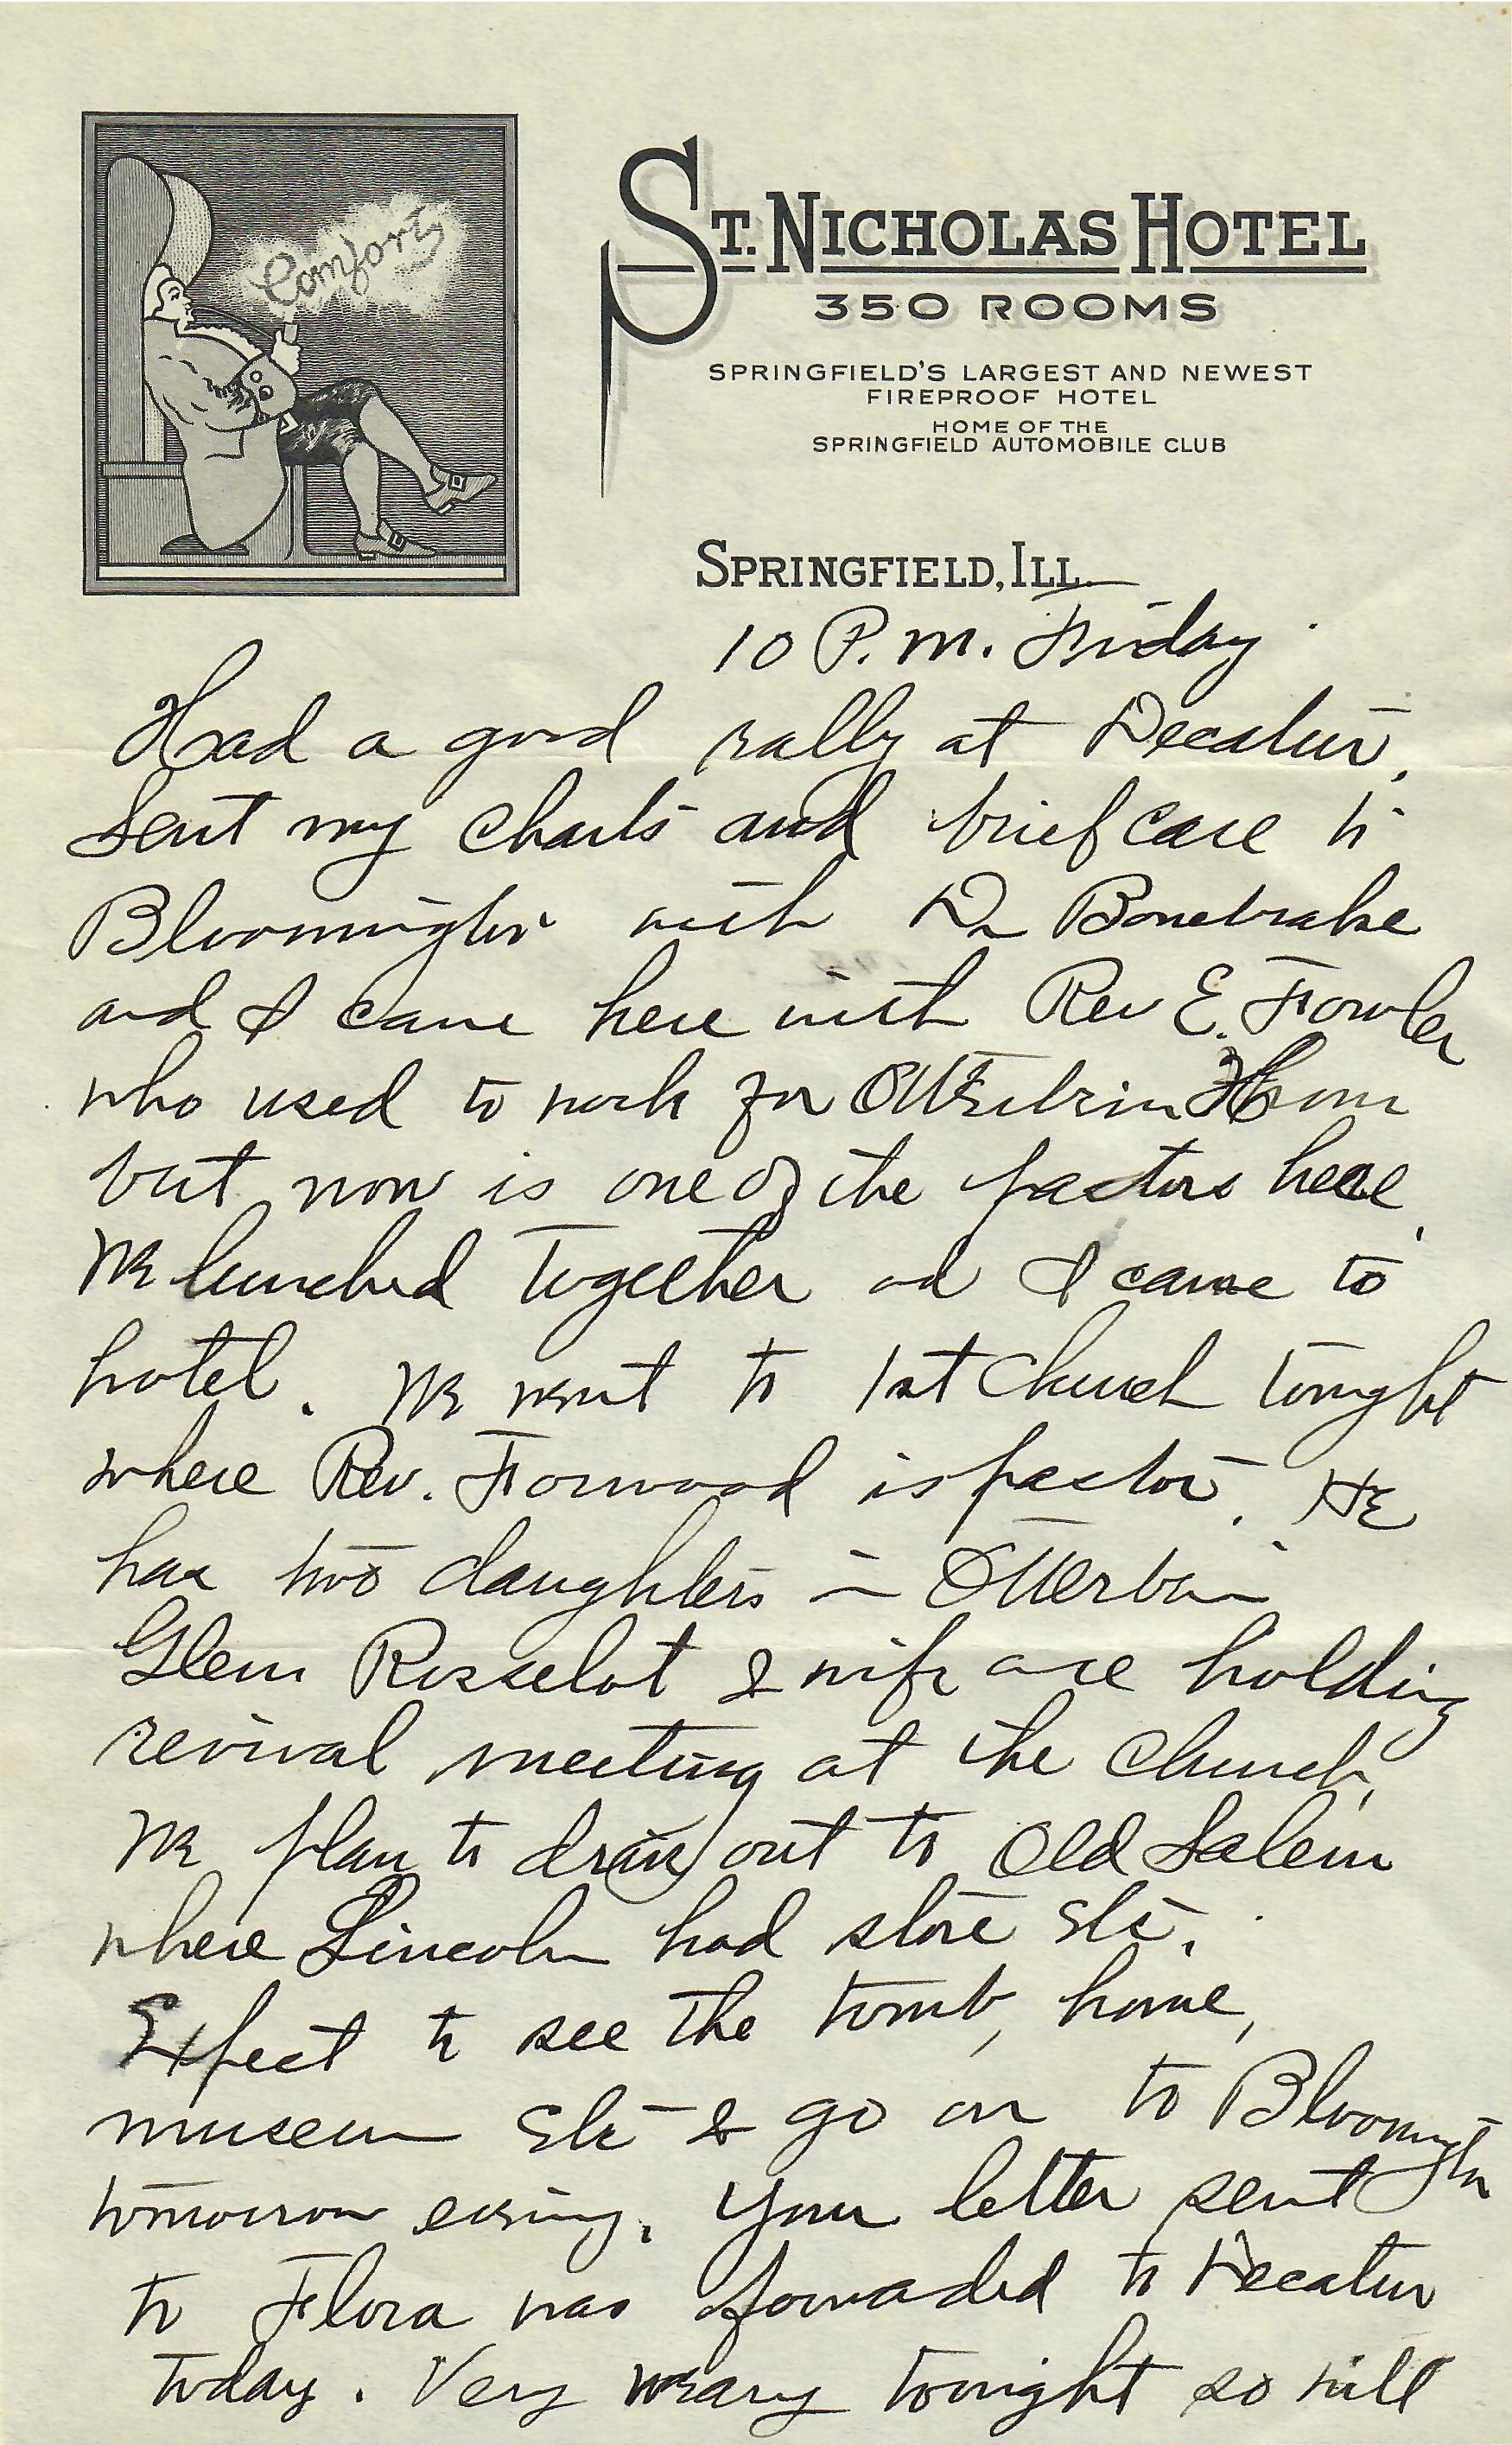 Comfort
ST. NICHOLAS HOTEL
350 ROOMS
SPRINGFIELD'S LARGEST AND NEWEST
FIREPROOF HOTEL
HOME OF THE
SPRINGFIELD AUTOMOBILE CLUB
SPRINGFIELD, ILL.
10 P.M. Friday
Had a good rally at Decatur.
Sent my charts and brief case to
Bloomington with Dr Bonebrake
and I came here with Rev E. Fowler
who used to work for Otterbein Home
but now is one of the pastors here.
We lunched together and I came to
hotel. We went to 1st Church tonight
where Rev. Forwood is pastor. He
has two daughters in Otterbein
Glenn Rosselot & wife are holding
revival meeting at the church.
We plan to drive out to Old Salem
where Lincoln had store etc.
Expect to see the tomb, home,
museum etc & go on to Bloomington
tomorrow evening. Your letter sent
to Flora was forwaded to Decatur
today. Very weary tonight so will